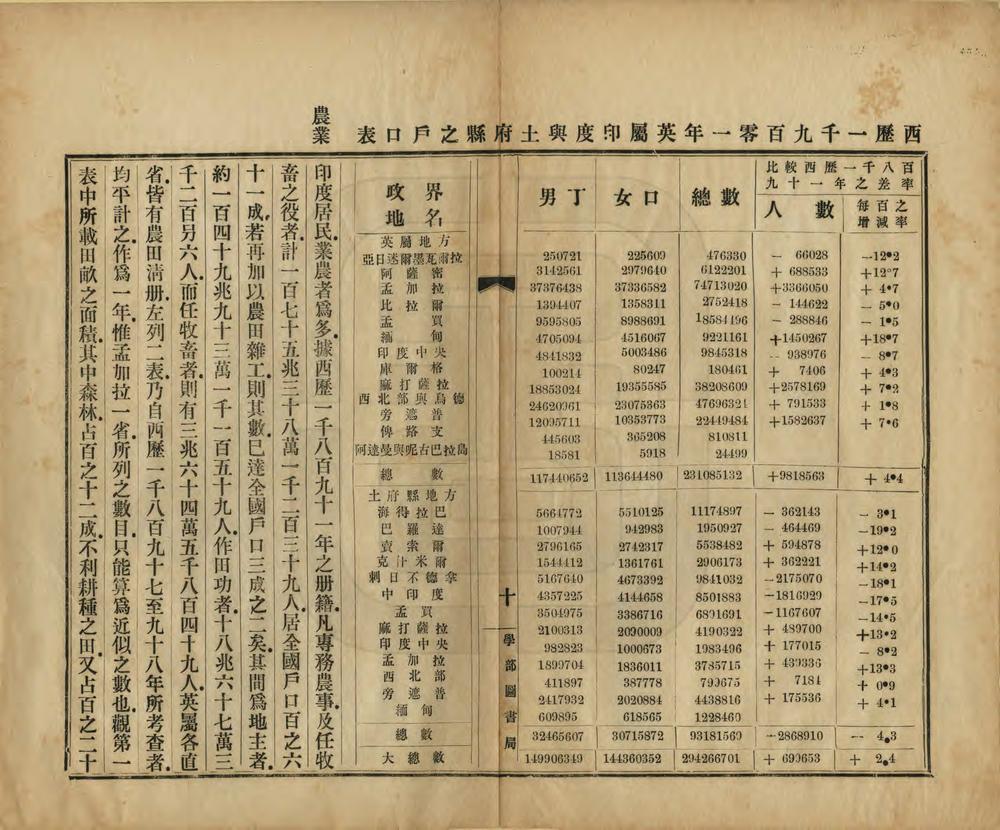 西歷一千九百零一年英屬印度與土府縣之戶口表
政界地名 男丁 女口 總數 比較西歷一千八百九十一年之差率
人數 每百之增減率
英屬地方
亞日迷爾墨瓦爾拉 250721 225609 476330 － 66028 －12•2
阿薩密 3142561 2979640 6122201 + 688533 +12•7
孟加拉 37376438 37336582 74713020 +3366050 + 4•7
比拉爾 1394407 1358311 2752418 － 144622 － 5•0
孟買 9595805 8988691 18584496 － 288846 － 1•5
緬甸 4705094 4516067 9221161 +1450267 +18•7
印度中央 4841832 5003486 9845318 － 938976 － 8•7
庫爾格 100214 80247 180461 + 7406 + 4•3
麻打薩拉 18853024 19355585 38208609 +2578169 + 7•2
西北部與烏德 24620961 23075363 47696324 + 791533 + 1•8
旁遮普 12095711 10353773 22449484 +1582637 + 7•6
俾路支 445603 365208 810811
阿達曼與呢古巴拉島 18581 5918 24499
總數 117440652 113644480 231085132 +9818563 + 4•4
土府縣地方
海得拉巴 5664772 5510125 11174897 － 362143 － 3•1
巴羅達 1007944 942983 1950927 － 464469 －19•2
賣索爾 2796165 2742317 5538482 + 594878 +12•0
克汁米爾 1544412 1361761 2906173 + 362221 +14•2
刺日不德拿 5167640 4673392 9841032 －2175070 －18•1
中印度 4357225 4144658 8501883 －1816929 －17•5
孟買 3504975 3386716 6891691 －1167607 －14•5
麻打薩拉 2100313 2090009 4190322 + 489700 +13•2
印度中央 982823 1000673 1983496 + 177015 － 8•2
孟加拉 1899704 1836011 3785715 + 439336 +13•3
西北部 411897 387778 799675 + 7184 + 0•9
旁遮普 2417932 2020884 4438816 + 175536 + 4•1
緬甸 609895 618565 1228460
總數 32465607 30715872 93181569 －2868910 － 4.3
大總數 149906349 144360352 294266701 + 699653 + 2.4
十
學部圖書局
農業
印度居民業農者爲多據西歷一千八百九十一年之册籍凡專務農事及任牧
畜之役者計一百七十五兆三十八萬一千二百三十九人居全國戶口百之六
十一成若再加以農田雜工則其數已達全國戶口三成之二矣其間爲地主者
約一百四十九兆九十三萬一千一百五十九人作田功者十八兆六十七萬三
千二百另六人而任牧畜者則有三兆六十四萬五千八百四十九人英屬各直
省皆有農田清册左列二表乃自西歷一千八百九十七至九十八年所考查者
均平計之作爲一年惟孟加拉一省所列之數目只能算爲近似之數也觀第一
表中所載田畝之面積其中森林占百之十二成不利耕種之田又占百之二十